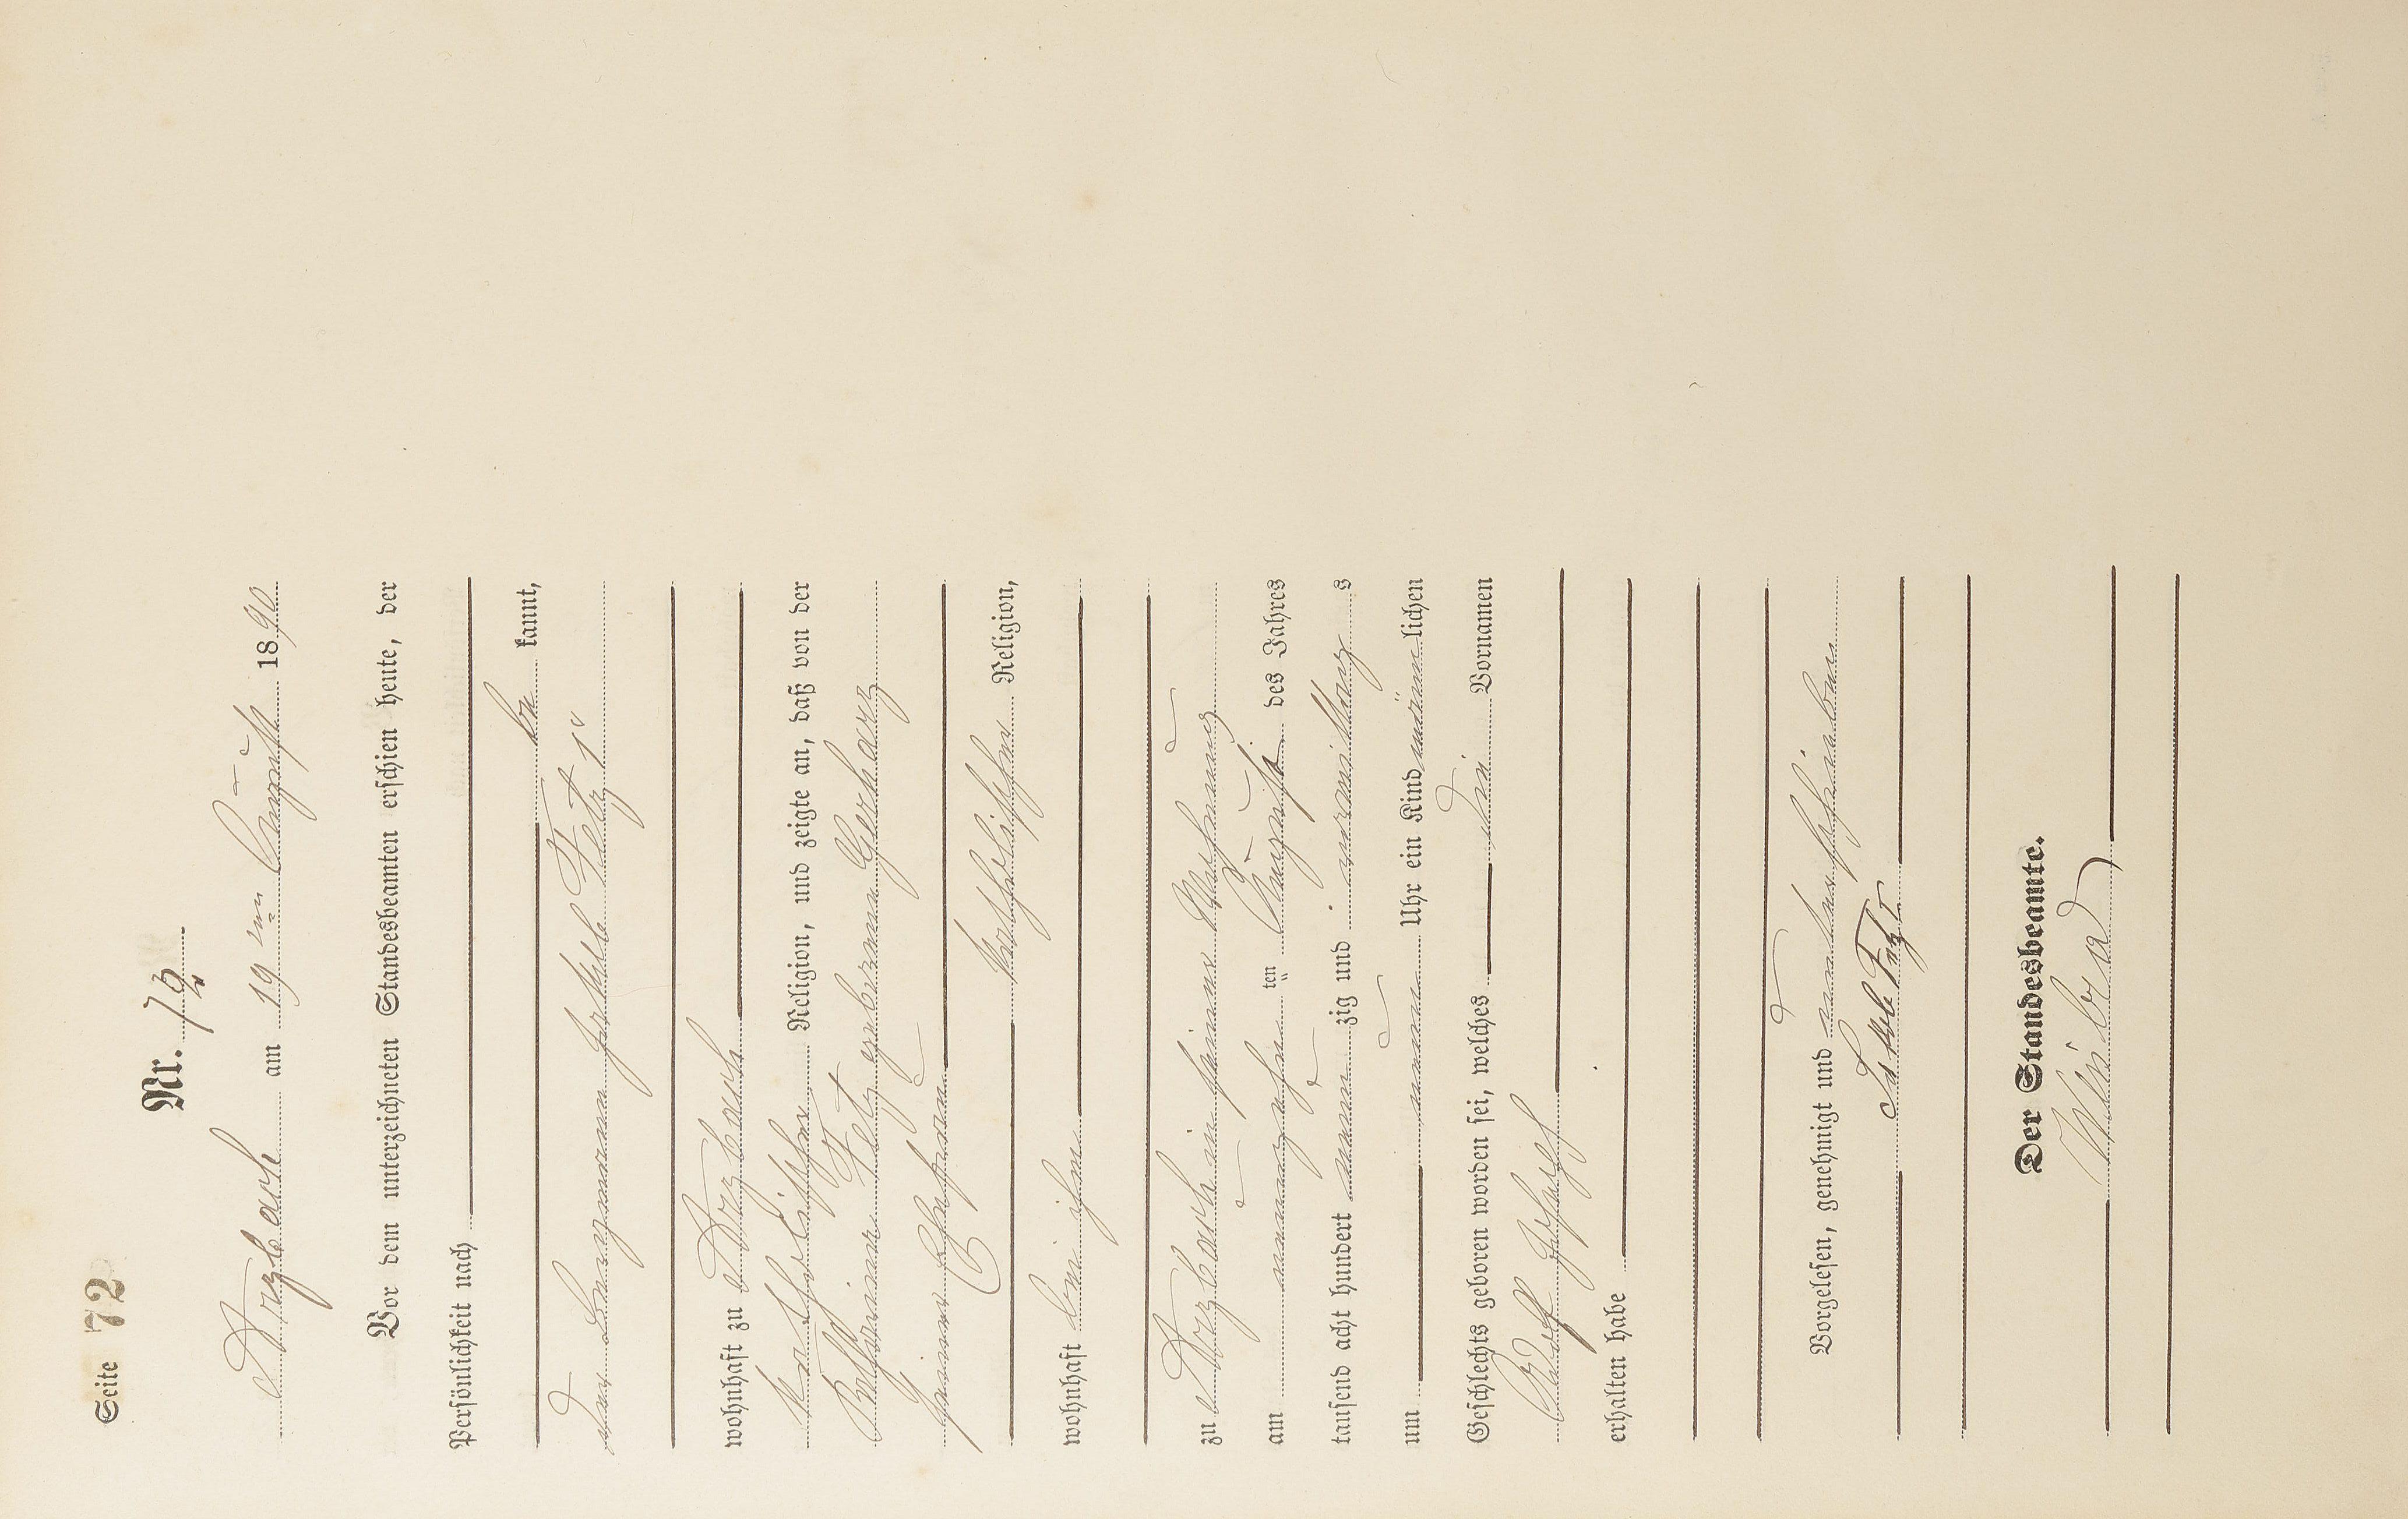 Seite 72
Nr. 72
Arzbach am 19ten August 1890
Vor dem unterzeichneten Standesbeamten erschien heute, der
Persönlichkeit nach
be kannt,
der Bergmann Jakob Fetz 1r
wohnhaft zu Arzbach
katholischer Religion, und zeigte an, daß von der
Katharina Fetz geborene Gerharz
seiner Ehefrau
katholischer Religion,
wohnhaft bei ihm
zu Arzbach in seiner Wohnung
am neunzehn ten August des Jahres
tausend acht hundert neun zig und Vormittag s
um neun Uhr ein Kind männ lichen
Geschlechts geboren worden sei, welches die Vornamen
Adolf Joseph
erhalten habe
Vorgelesen, genehmigt und unterschrieben
Jakob Fetz
Der Standesbeamte.